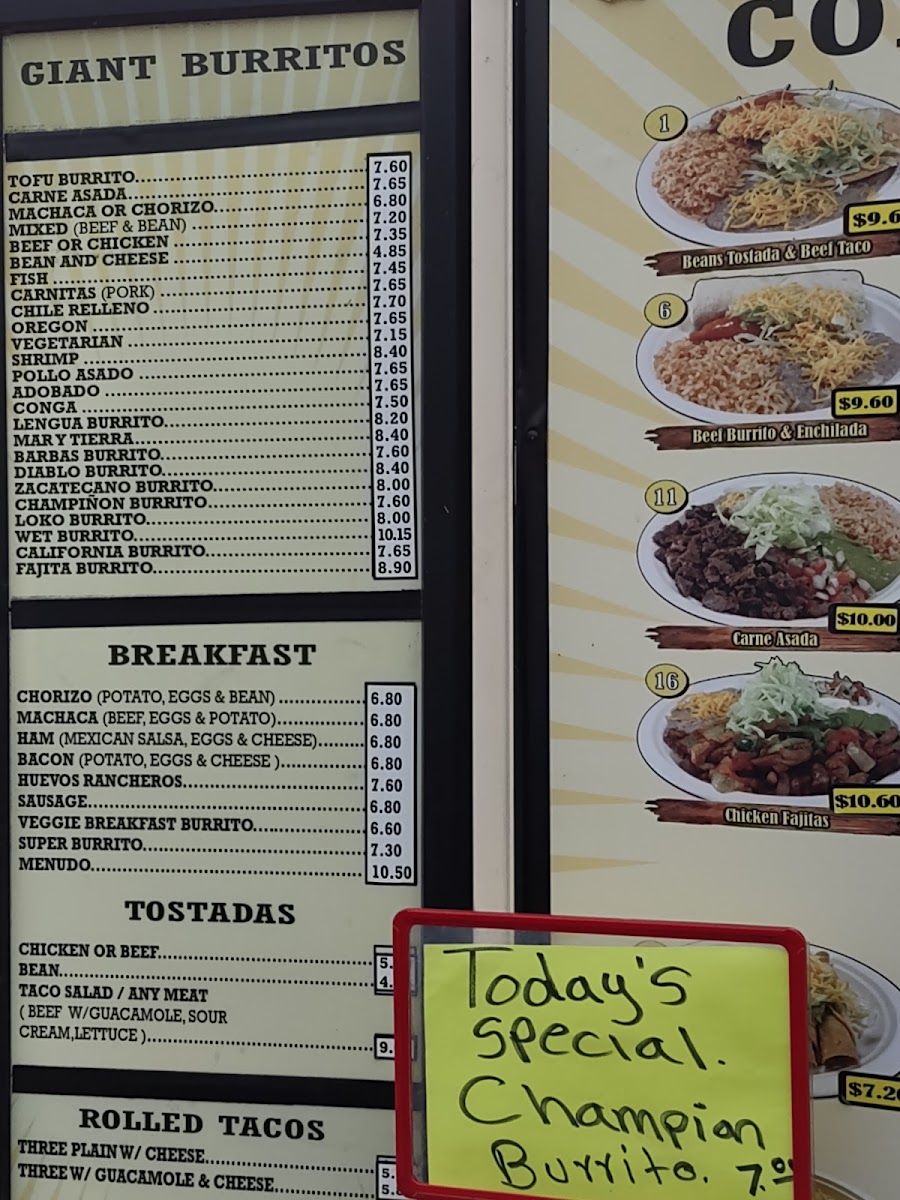 GIANT BURRITOS
TOFU BURRITO 7.60
CARNE ASADA 7.65
MACHACA OR CHORIZO 6.80
MIXED (BEEF & BEAN) 7.20
BEEF OR CHICKEN 7.35
BEAN AND CHEESE 4.85
FISH 7.45
CARNITAS (PORK) 7.65
CHILE RELLENO 7.70
OREGON 7.65
VEGETARIAN 7.15
SHRIMP 8.40
POLLO ASADO 7.65
ADOBADO 7.65
CONGA 7.50
LENGUA BURRITO 8.20
MAR Y TIERRA 8.40
BARBAS BURRITO 7.60
DIABLO BURRITO 8.40
ZACATECANO BURRITO 8.00
CHAMPIÑON BURRITO 7.60
LOKO BURRITO 8.00
WET BURRITO 10.15
CALIFORNIA BURRITO 7.65
FAJITA BURRITO 8.90
BREAKFAST
CHORIZO (POTATO, EGGS & BEAN) 6.80
MACHACA (BEEF, EGGS & POTATO) 6.80
HAM (MEXICAN SALSA, EGGS & CHEESE) 6.80
BACON (POTATO, EGGS & CHEESE ) 6.80
HUEVOS RANCHEROS 7.60
SAUSAGE 6.80
VEGGIE BREAKFAST BURRITO 6.60
SUPER BURRITO 7.30
MENUDO 10.50
TOSTADAS
CHICKEN OR BEEF 5.
BEAN 4.
TACO SALAD / ANY MEAT
( BEEF W/GUACAMOLE, SOUR
CREAM,LETTUCE ) 9.
ROLLED TACOS
THREE PLAIN W/ CHEESE 5.
THREE W/ GUACAMOLE & CHEESE 5.
CO
1
$9.6
Beans Tostada & Beef Taco
6
$9.60
Beef Burrito & Enchilada
11
$10.00
Carne Asada
16
$10.60
Chicken Fajitas
$7.20
Today's
special.
Champion
Burrito. 7.00